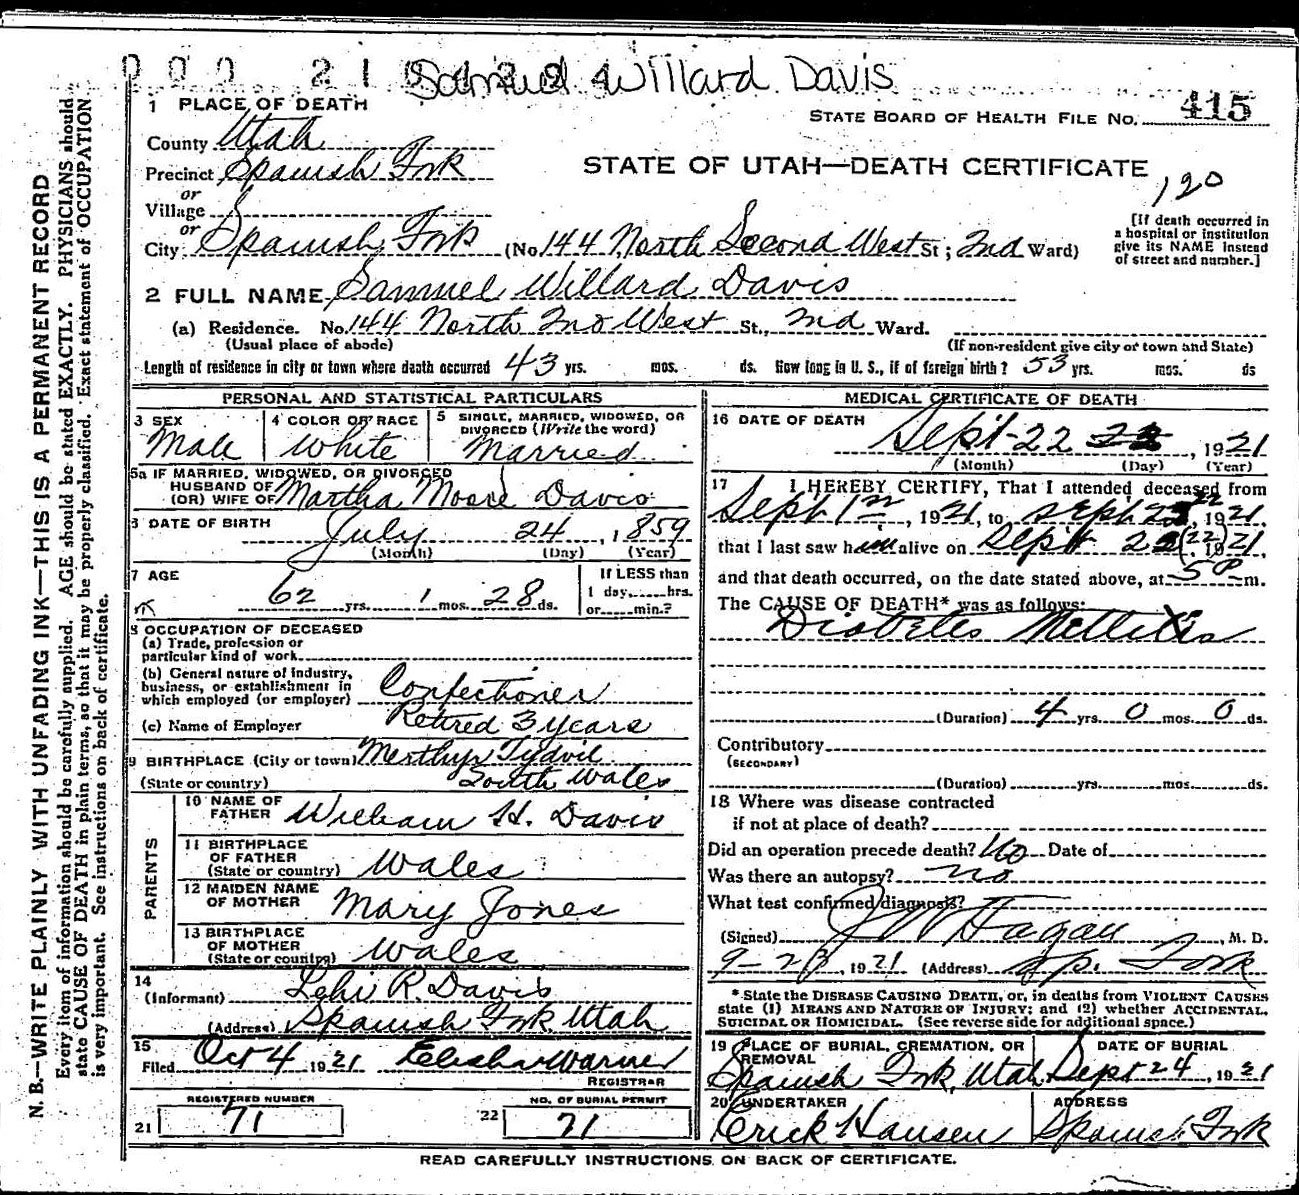 Samuel Willard Davis
1 PLACE OF DEATH
STATE BOARD OF HEALTH FILE NO. 415
County Utah
STATE OF UTAH—DEATH CERTIFICATE
Precinct Spanish Fork
120
or
Village
or
City Spanish Fork (No. 144 North Second West St; 2nd Ward)
[If death occurred in
a hospital or institution
give its NAME instead
of street and number.]
2 FULL NAME Samuel Willard Davis
(a) Residence. No. 144 North 2nd West St., 2nd Ward.
(Usual place of abode) (If non-resident give city or town and State)
Length of residence in city or town where death occurred 43 yrs. mos. ds. How long in U. S., if of foreign birth? 53 yrs. mos. ds
PERSONAL AND STATISTICAL PARTICULARS
3 SEX Male
4 COLOR OR RACE White
5 SINGLE, MARRIED, WIDOWED, OR
DIVORCED (Write the word)
Married
5a IF MARRIED, WIDOWED, OR DIVORCED
HUSBAND OF
(OR) WIFE OF Martha Moore Davis
6 DATE OF BIRTH July 24, 1859
(Month) (Day) (Year)
7 AGE
62 yrs. 1 mos. 28 ds.
If LESS than
1 day, hrs.
or min.?
8 OCCUPATION OF DECEASED
(a) Trade, profession or
particular kind of work
(b) General nature of industry,
business, or establishment in
which employed (or employer) Confectioner
Retired 3 years
(c) Name of Employer
9 BIRTHPLACE (City or town) Merthyr Tydvil
(State or country) South Wales
PARENTS
10 NAME OF
FATHER William H. Davis
11 BIRTHPLACE
OF FATHER
(State or country) Wales
12 MAIDEN NAME
OF MOTHER Mary Jones
13 BIRTHPLACE
OF MOTHER
(State or country) Wales
14
(Informant) Lehi R. Davis
(Address) Spanish Fork Utah
15
Filed Oct 4 1921 Elisha Warner
REGISTRAR
REGISTERED NUMBER
21 71
NO. OF BURIAL PERMIT
22 71
MEDICAL CERTIFICATE OF DEATH
16 DATE OF DEATH
Sept-22, 1921
(Month) (Day) (Year)
17 I HEREBY CERTIFY, That I attended deceased from
Sept 1st, 1921, to Sept 22, 1921,
that I last saw him alive on Sept 22 (22), 1921,
and that death occurred, on the date stated above, at 5 P m.
The CAUSE OF DEATH* was as follows:
Diabetes Mellitus
(Duration) 4 yrs. 0 mos. 0 ds.
Contributory
(SECONDARY)
(Duration) yrs. mos. ds.
18 Where was disease contracted
if not at place of death?
Did an operation precede death? No Date of
Was there an autopsy? no
What test confirmed diagnosis?
(Signed) J W Hagan, M. D.
1921 (Address) Sp. Fork
* State the DISEASE CAUSING DEATH, or, in deaths from VIOLENT CAUSES
state (1) MEANS AND NATURE OF INJURY; and (2) whether ACCIDENTAL,
SUICIDAL OR HOMICIDAL. (See reverse side for additional space.)
19 PLACE OF BURIAL, CREMATION, OR
REMOVAL
Spanish Fork, Utah
DATE OF BURIAL
Sept 24, 1921
20 UNDERTAKER
Erick Hansen
ADDRESS
Spanish Fork
READ CAREFULLY INSTRUCTIONS ON BACK OF CERTIFICATE.
N. B.—WRITE PLAINLY WITH UNFADING INK—THIS IS A PERMANENT RECORD
Every item of information should be carefully supplied. AGE should be stated EXACTLY. PHYSICIANS should
state CAUSE OF DEATH in plain terms, so that it may be properly classified. Exact statement of OCCUPATION
is very important. See instructions on back of certificate.